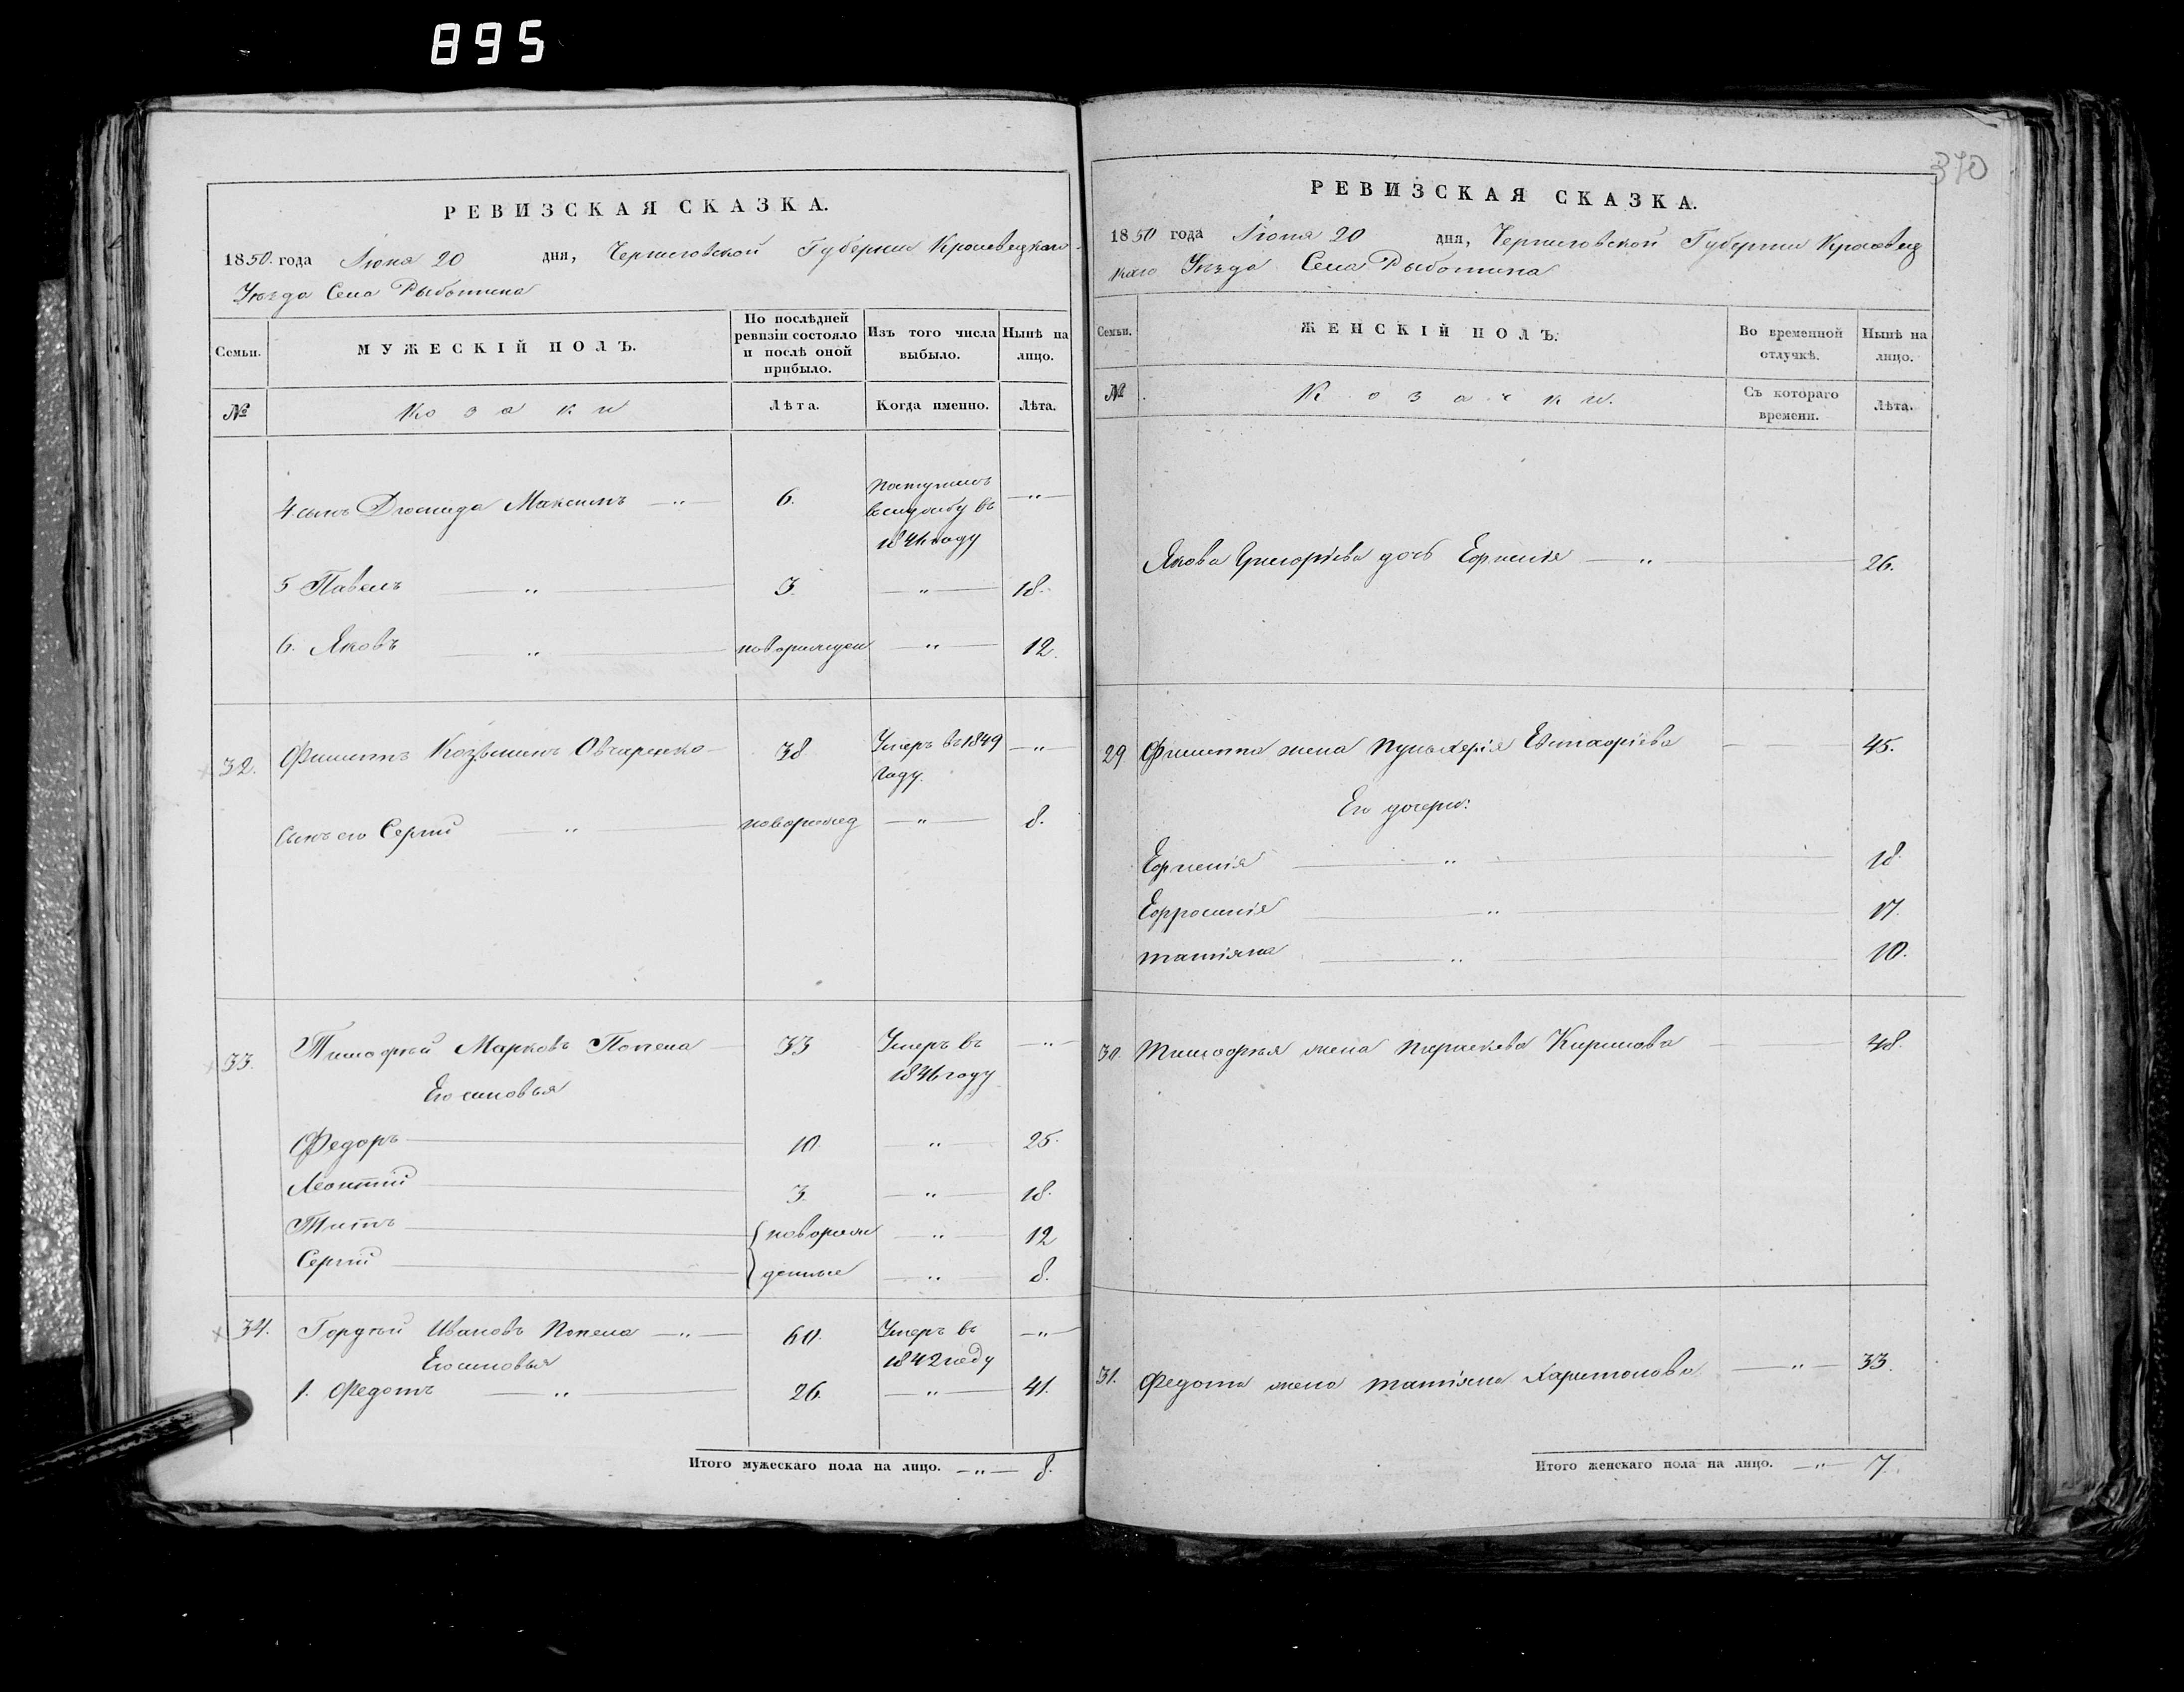 895
370
РЕВИЗСКАЯ СКАЗКА.
1850. года Июня 20 дня, Черниговской Губернии Кролевецкаго
Уѣзда Села Рыботина
Семьи.
МУЖЕСКІЙ ПОЛЪ.
По послѣдней ревизіи состояло и послѣ оной прибыло.
Изъ того числа выбыло.
Нынѣ на лицо.
№
Козаки
Лѣта.
Когда именно.
Лѣта.
4. сынъ Максимъ — " — 6. поступилъ — " —
въ службу въ
1846 году
5 Павелъ — " — 3. — " — 18.
6. Яковъ — " — новорожден — " — 12.
32. Филиппъ Козьминъ Овчаренко — 38 Умеръ въ 1849 — " —
году.
Сынъ его Сергій — " — новорожд — " — 8.
33. Тимофѣй Марковъ Попека — 33 Умеръ въ — " —
1846 году
Его сыновья
Федоръ — 10. — " — 25.
Леонтій — 3. — " — 18.
Титъ — { новорож — " — 12
Сергій — { денные — " — 8.
34. Гордѣй Ивановъ Попека — " — 60. Умеръ въ — " —
1842 году
Его сыновья
1. Федотъ — " — 26. — " — 41.
Итого мужескаго пола на лицо. — " — 8.
РЕВИЗСКАЯ СКАЗКА.
1850 года Июня 20 дня, Черниговской Губернии Кролевец
каго Уѣзда Села Рыботина
Семьи.
ЖЕНСКІЙ ПОЛЪ.
Во временной отлучкѣ.
Нынѣ на лицо.
№
Козачки.
Съ котораго времени.
Лѣта.
Якова Григоріева дочь Ефимія — " — 26.
29 Филиппа жена Пульхерія Евстафіева — 45.
Его дочери:
Ефимія — " — 18.
Ефросинія — " — 17.
Татіяна — " — 10.
30. Тимофѣя жена Параскева Кирилова — 48.
31. Федота жена Татіяна Харитонова — " — 33.
Итого женскаго пола на лицо. — " — 7.